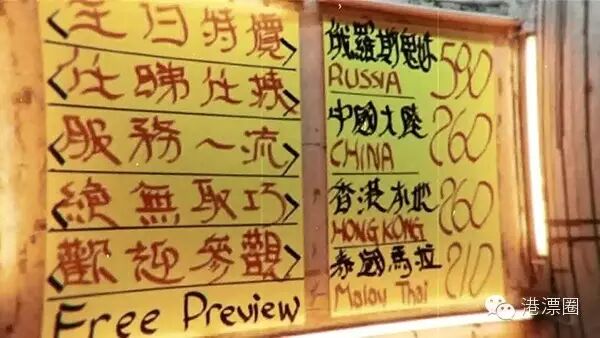 全日特價
任睇任揀
服務一流
絕無取巧
歡迎參觀
Free Preview
俄羅斯鬼妹
RUSSIA
590
中國大陸
CHINA
260
香港本地
HONG KONG
260
泰國馬拉
Malay Thai
210
港漂圈